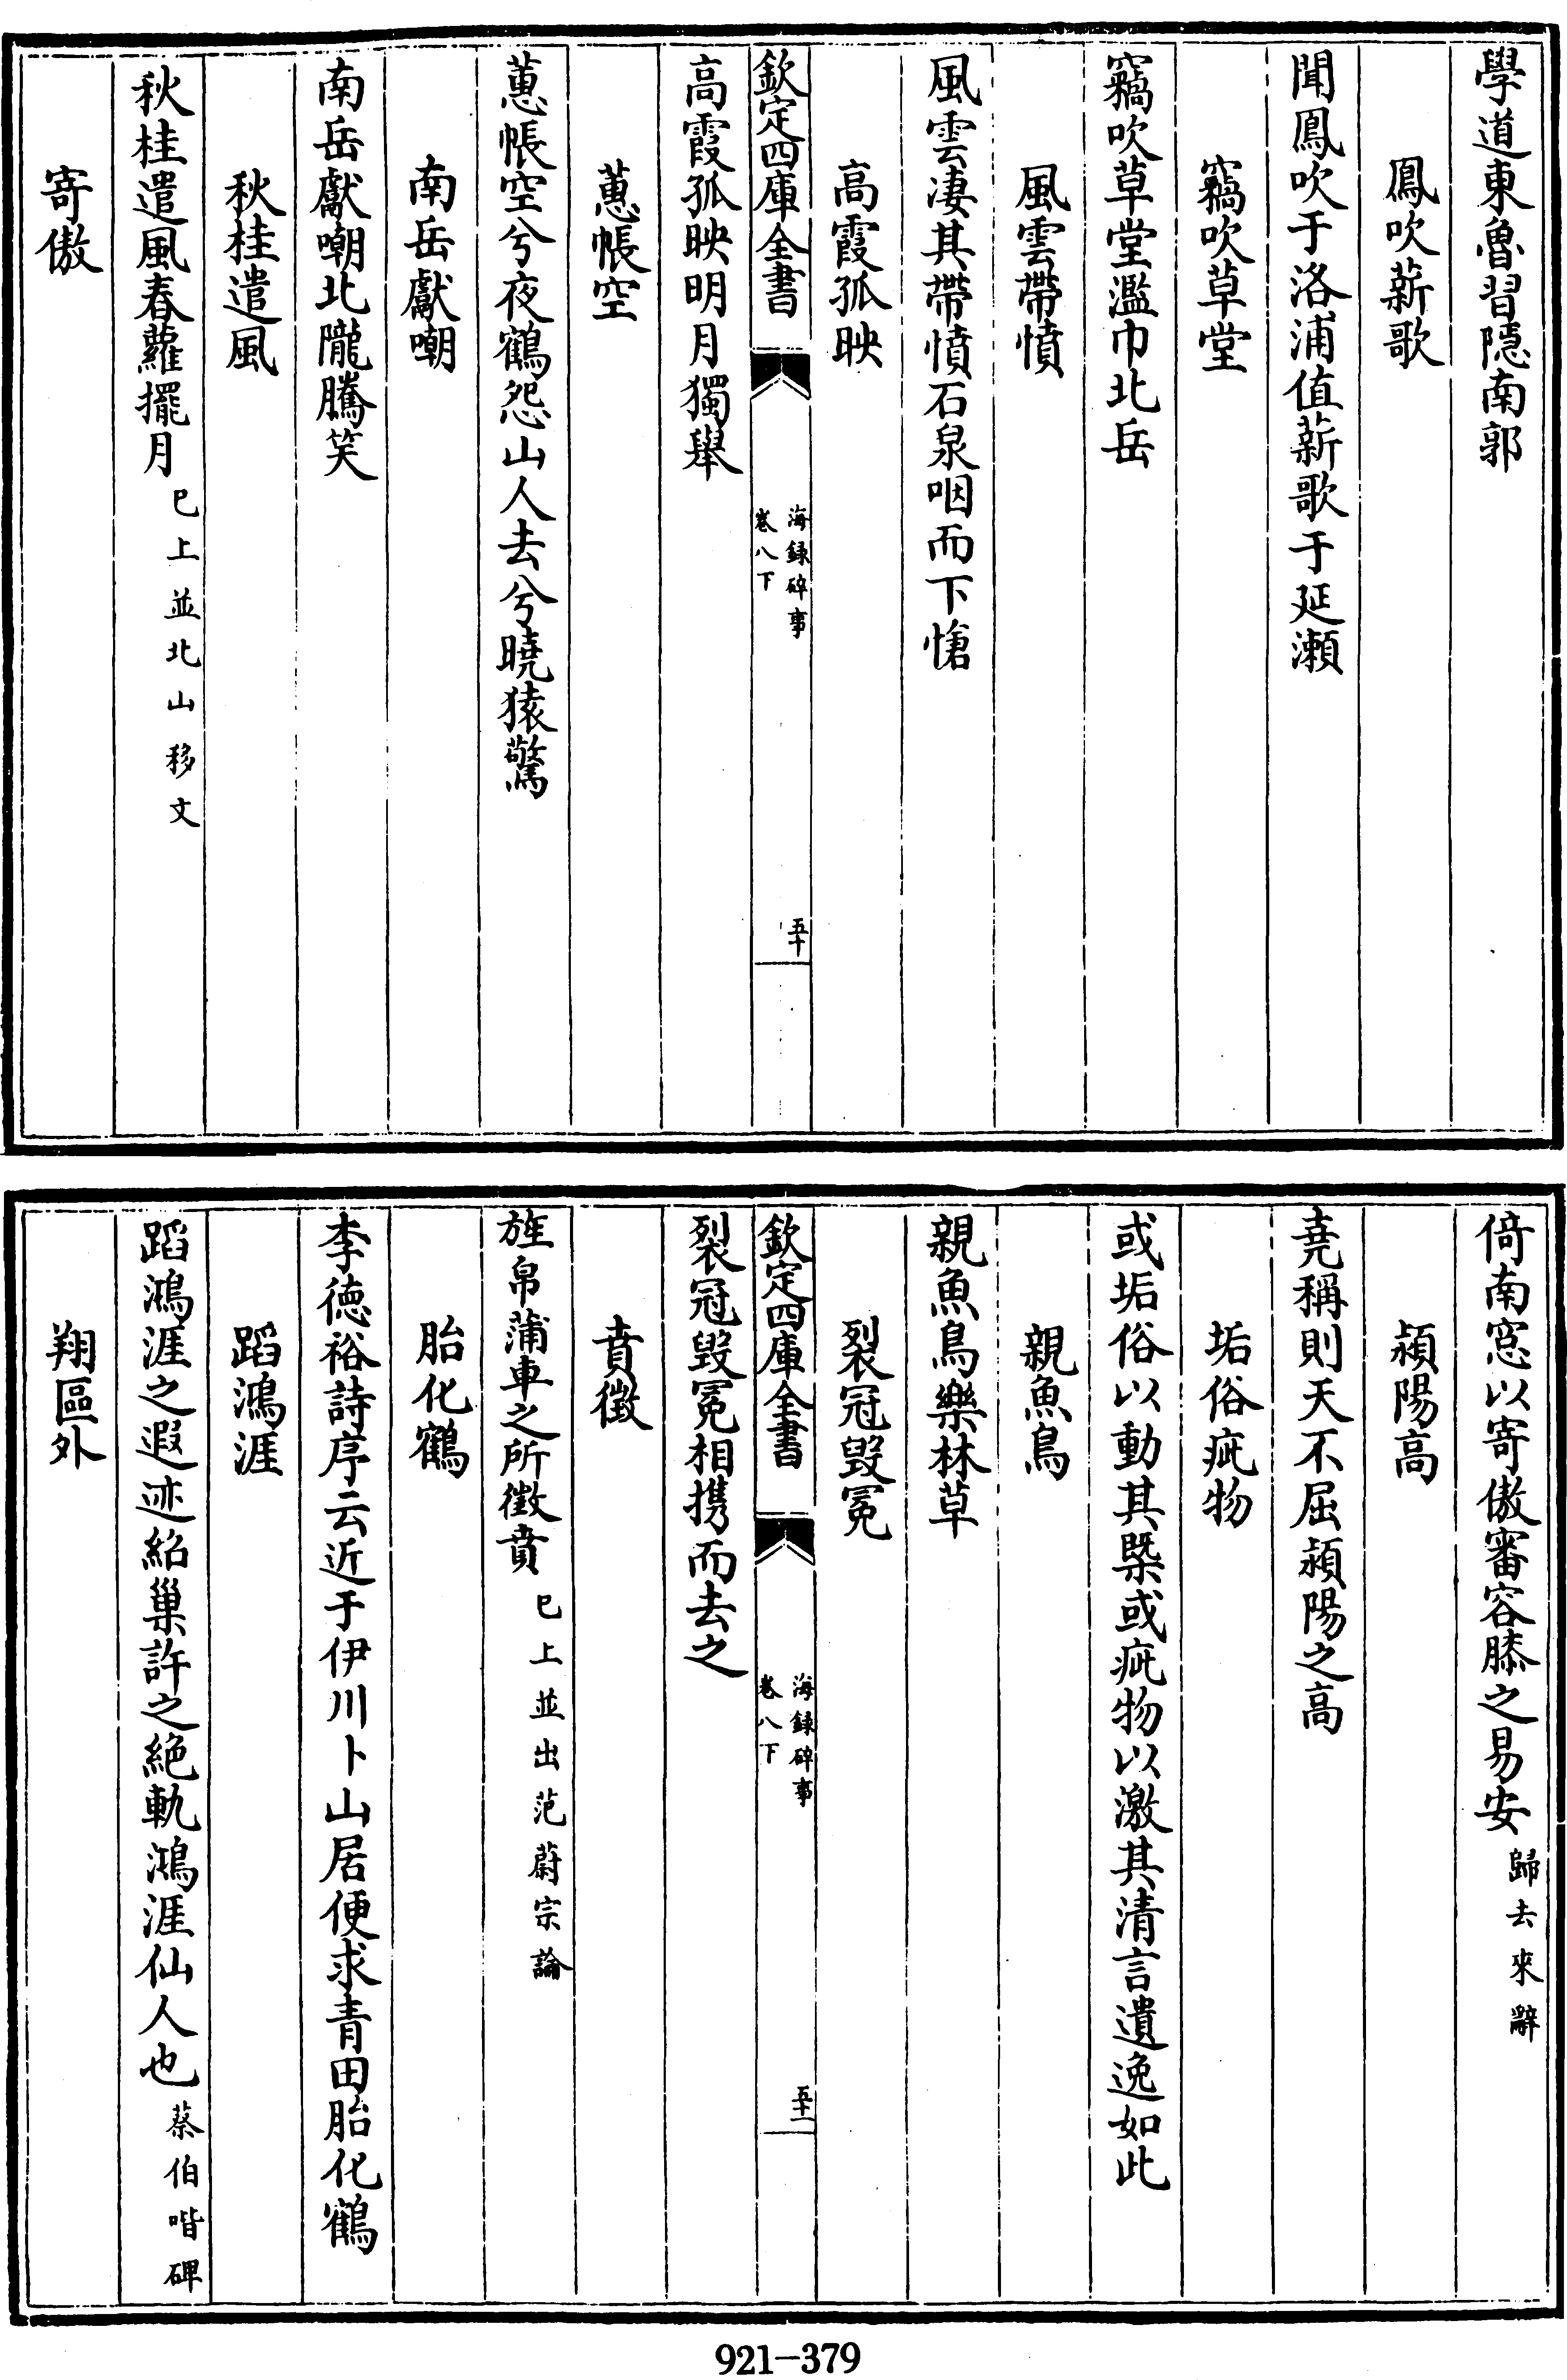 學道東魯習隱南郭
鳳吹薪歌
聞鳳吹于洛浦值薪歌于延瀬
竊吹草堂
竊吹草堂濫巾北岳
風雲帶憤
風雲凄其帶憤石泉咽而下愴
高霞孤映
欽定四庫全書
海録碎事
卷八下
五十
高霞孤映明月獨舉
蕙帳空
蕙帳空兮夜鶴怨山人去兮曉猿驚
南岳獻嘲
南岳獻嘲北隴騰笑
秋桂遣風
秋桂遣風春蘿擺月已上並北山移文
寄傲
倚南窓以寄傲審容膝之易安歸去來辭
潁陽高
堯稱則天不屈潁陽之高
垢俗疵物
或垢俗以動其槩或疵物以激其清言遺逸如此
親魚鳥
親魚鳥樂林草
裂冠毀冕
欽定四庫全書
海録碎事
卷八下
五十一
裂冠毀冕相携而去之
賁徵
旌帛蒲車之所徵賁已上並出范蔚宗論
胎化鶴
李徳裕詩序云近于伊川卜山居便求青田胎化鶴
蹈鴻涯
蹈鴻涯之遐迹紹巢許之絶軌鴻涯仙人也蔡伯喈碑
翔區外
921-379